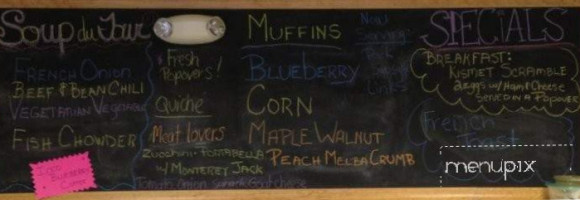 Soup du Jour
French Onion
Beef & Bean Chili
Vegetarian Vegetable
Fish Chowder
Fresh
Popovers!
Quiche
Meat lovers
Zucchini + Tomabella
w/ Monterey Jack
Muffins
Blueberry
Corn
Maple Walnut
Peach Melba Crumb
Now
Links
SPECIALS
Breakfast:
Kismet Scramble
2 eggs w/ Ham & Cheese
Served in a Popover
French
Toast
menupix